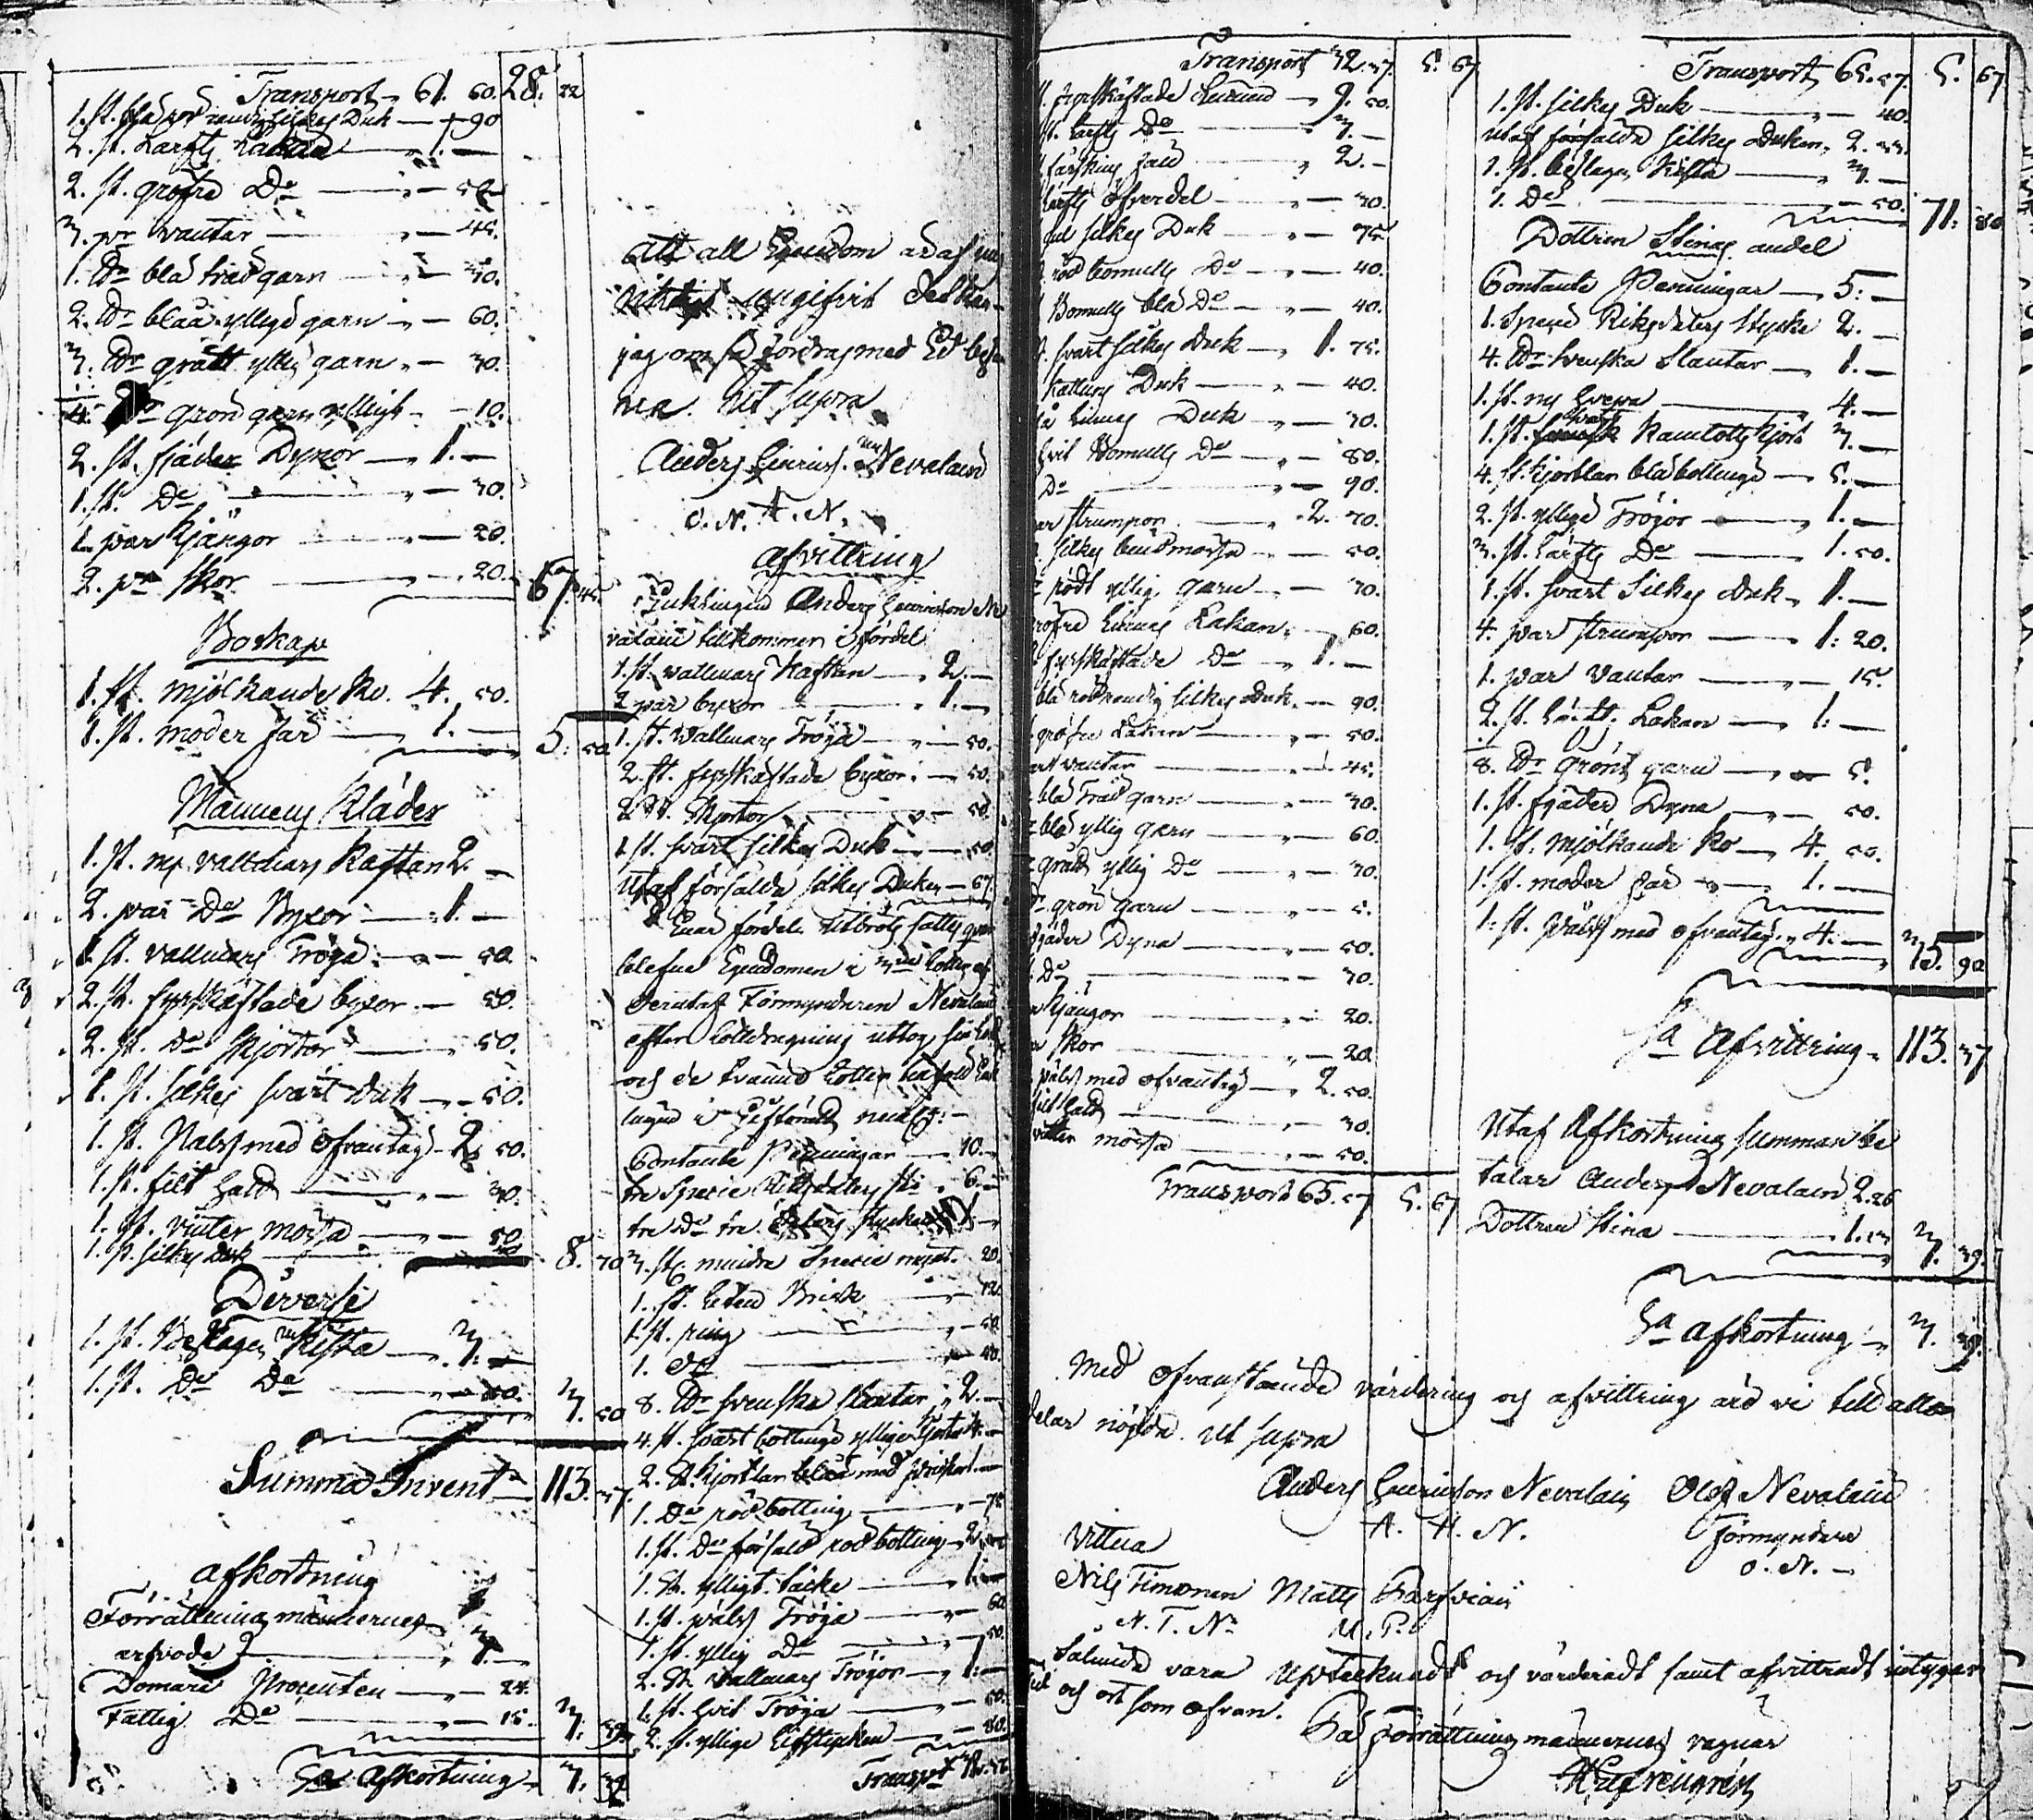 Transport 61. 60. 28: 22
1. st. blå och randig silkes Duk — 90
2. st. Larfts Lakan — 1. —
2. st. gröfre Do — 50.
3. pr vantar — 45.
1. tt blå trådgarn — 30.
2. tt blåa yllegarn — 60.
3. tt grått yllegarn — 30.
grönt garn ylligt — 10.
2. st. fjäder Dynor — 1. —
1. st. Do — 30.
1. par Kjängor — 20.
2. pr skor — 20. 67. 45.
Boskap
1. st. mjölkande Ko. 4. 50.
1. st. moder får — 1. — 5: 50
Mannens Kläder
1. st. ny valtmars Kaftan 2. —
2. par Do Byxor — 1. —
1. st. vallmars Tröja — 50.
2. st. fyrskäftade byxor — 50.
2. st. Do Skjortor — 50.
1. st. silkes svart duk — 50.
1. st. Päls med ofvantyg — 2. 50.
1. st. filt hatt — 30.
1. st. vinter mössa — 50.
1. st. silkes duk — 8. 70
Diverse
1. st. Beslagen Kista — 3. —
1. st. Do Do — 50. 3. 50
Summa Invent — 113. 37.
afkortning
Förrättningsmännernes
arfvode — 3. —
Domare Procenten — 24.
Fattig Do — 15. 3. 39
Sa Afkortning — 3. 39
att all Egendom är af mig
riktigt uppgifvit det kan
jag om så fordras med Ed
Ut supra
Anders Henrics. Nevalain
A. N.
Afvittring
Enklingen Anders Henricsson Ne
valain tillkommer i fördel
1. st. vallmars Kaftan — 2. —
2 par byxor — 1. —
1. st. Vallmars Tröja — 50.
2. st. fyrskäftade byxor — 50.
2 st. Skjortor — 50
1 st. svart silkes Duk — 50
Utaf försålda silkes Duken — 67.
fördel utbröts sattes
Egendomen i lotter
derutaf Förmyndaren Nevalain
efter lottdragning uttog sin
och de tvenne lotter
Contante Penningar — 10. —
tre Specie Riksdalers st. 6. —
tre Do
3. st. mindre Specie mynt. 20.
1. st. Brisk —
1. st. ring — 50
1. Do — 40.
8. tt svenska slantar — 2. —
4. st. svart bottnige yllige
2. st. Kjortlar blåa med
1. Do röd botting — 75
1. st. Do försåld röd botting 2.
1. st. ylligt täcke — 1. —
1. st. päls Tröja — 60
1. st. yllig Do — 50.
2. st. vallmars Tröjor — 1. —
1. st. hvit Tröja — 50.
2. st. yllige lifstycken — 80.
Transport
Transport 32. 37. 5. 67
fyrskäftade — 9. 50.
Larfts Do — 3. —
fårskins fäll — 2. —
Larfts öfverdel — 30.
gul silkes Duk — 75.
röd bomulls Do — 40.
Bomulls blå Do — 40.
svart silkes Duk — 1. 75.
Kattuns Duk — 40.
Linnes Duk — 30.
hvit Bomulls Do — 80.
Do — 90.
strumpor — 2. 70.
silkes bindmössa — 50.
rödt yllig garn — 30.
gröfre Linnes Lakan — 60.
fyrskäftade Do — 1. —
blå rödrandig silkes Duk — 90.
gröfre Lakan — 50.
vantar — 45.
blå Trådgarn — 30.
blå yllig garn — 60.
grått yllig Do — 30.
grön garn — 5.
fjäder Dyna — 50.
Do — 30.
Kjängor — 20.
Skor — 20.
päls med ofvantyg — 2. 50.
filt hatt — 30.
mössa — 50.
Transport 65. 57 5. 67
Transport 65. 57. 5. 67
1. st. silkes Duk — 40.
Utaf försålda silkes Duken, 2. 33.
1. st. beslagen Kista — 3. —
1. Do — 50. 71: 80
Dottren Stinas andel
Contante Penningar — 5: —
1. Specie Riksdalers stycke 2. —
4. tt Svenska Slantar — 1. —
1. st. ny — 4. —
1. st. svart Kamlotts kjort 3. —
4. st. Kjortlar blåbottnige — 5. —
2. st. yllige Tröjor — 1. —
3. st. Lärfts Do — 1. 50.
1. st. svart Silkes duk — 1. —
4. par strumpor — 1: 20.
1. par vantar — 15.
2. st. Lärfts Lakan — 1: —
8. tt grönt garn — 5.
1. st. fjäder Dyna — 50.
1. st. mjölkande Ko — 4. 50.
1. st. moder får — 1. —
1. st. päls med ofvantyg — 4. — 35. 90
Sa Afvittring — 113. 37
Utaf Afkortnings summan be
talar Anders Nevalain 2. 26
Dottren Stina — 1. 13 3. 39.
Sa afkortning — 3. 39.
Med ofvanstående värdering och afvittring äro vi till alla
delar nöjda. Ut supra
Anders Henricsson Nevalain Olof Nevalain
A. H. N. Förmyndare
O. N. —
Vittna
Nils Timonen Matts Karfviain
N. T. Nn
Således vara Uptecknadt och värderadt samt afvittradt intygar
och ort som ofvan.
På Förrättningsmännernes vägnar